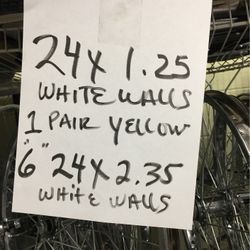 24 X 1.25
WHITE WALLS
1 PAIR YELLOW
"6" 24 X 2.35
WHITE WALLS